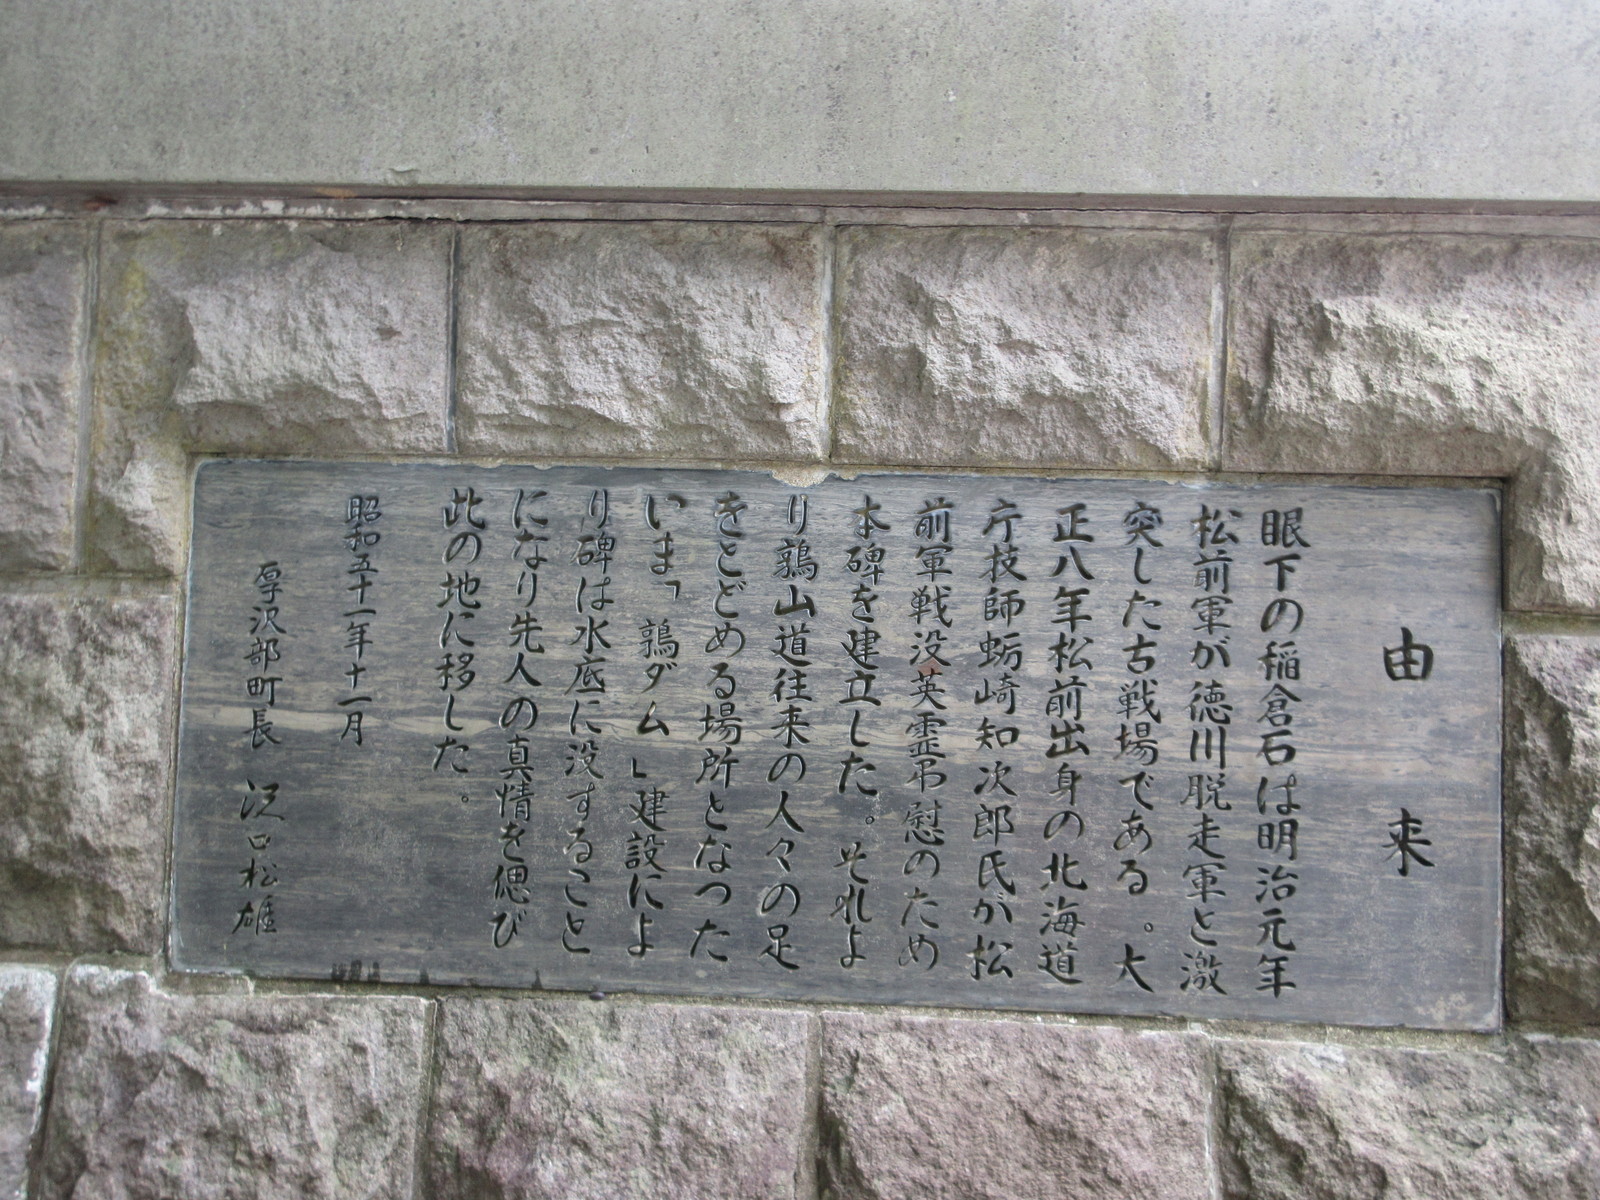 由来
眼下の稲倉石は明治元年
松前軍が徳川脱走軍と激
突した古戦場である。大
正八年松前出身の北海道
庁技師蛎崎知次郎氏が松
前軍戦没英霊弔慰のため
本碑を建立した。それよ
り鶉山道往来の人々の足
をとどめる場所となつた
いま「鶉ダム」建設によ
り碑は水底に没すること
になり先人の真情を偲び
此の地に移した。
昭和五十一年十一月
厚沢部町長 沢口松雄